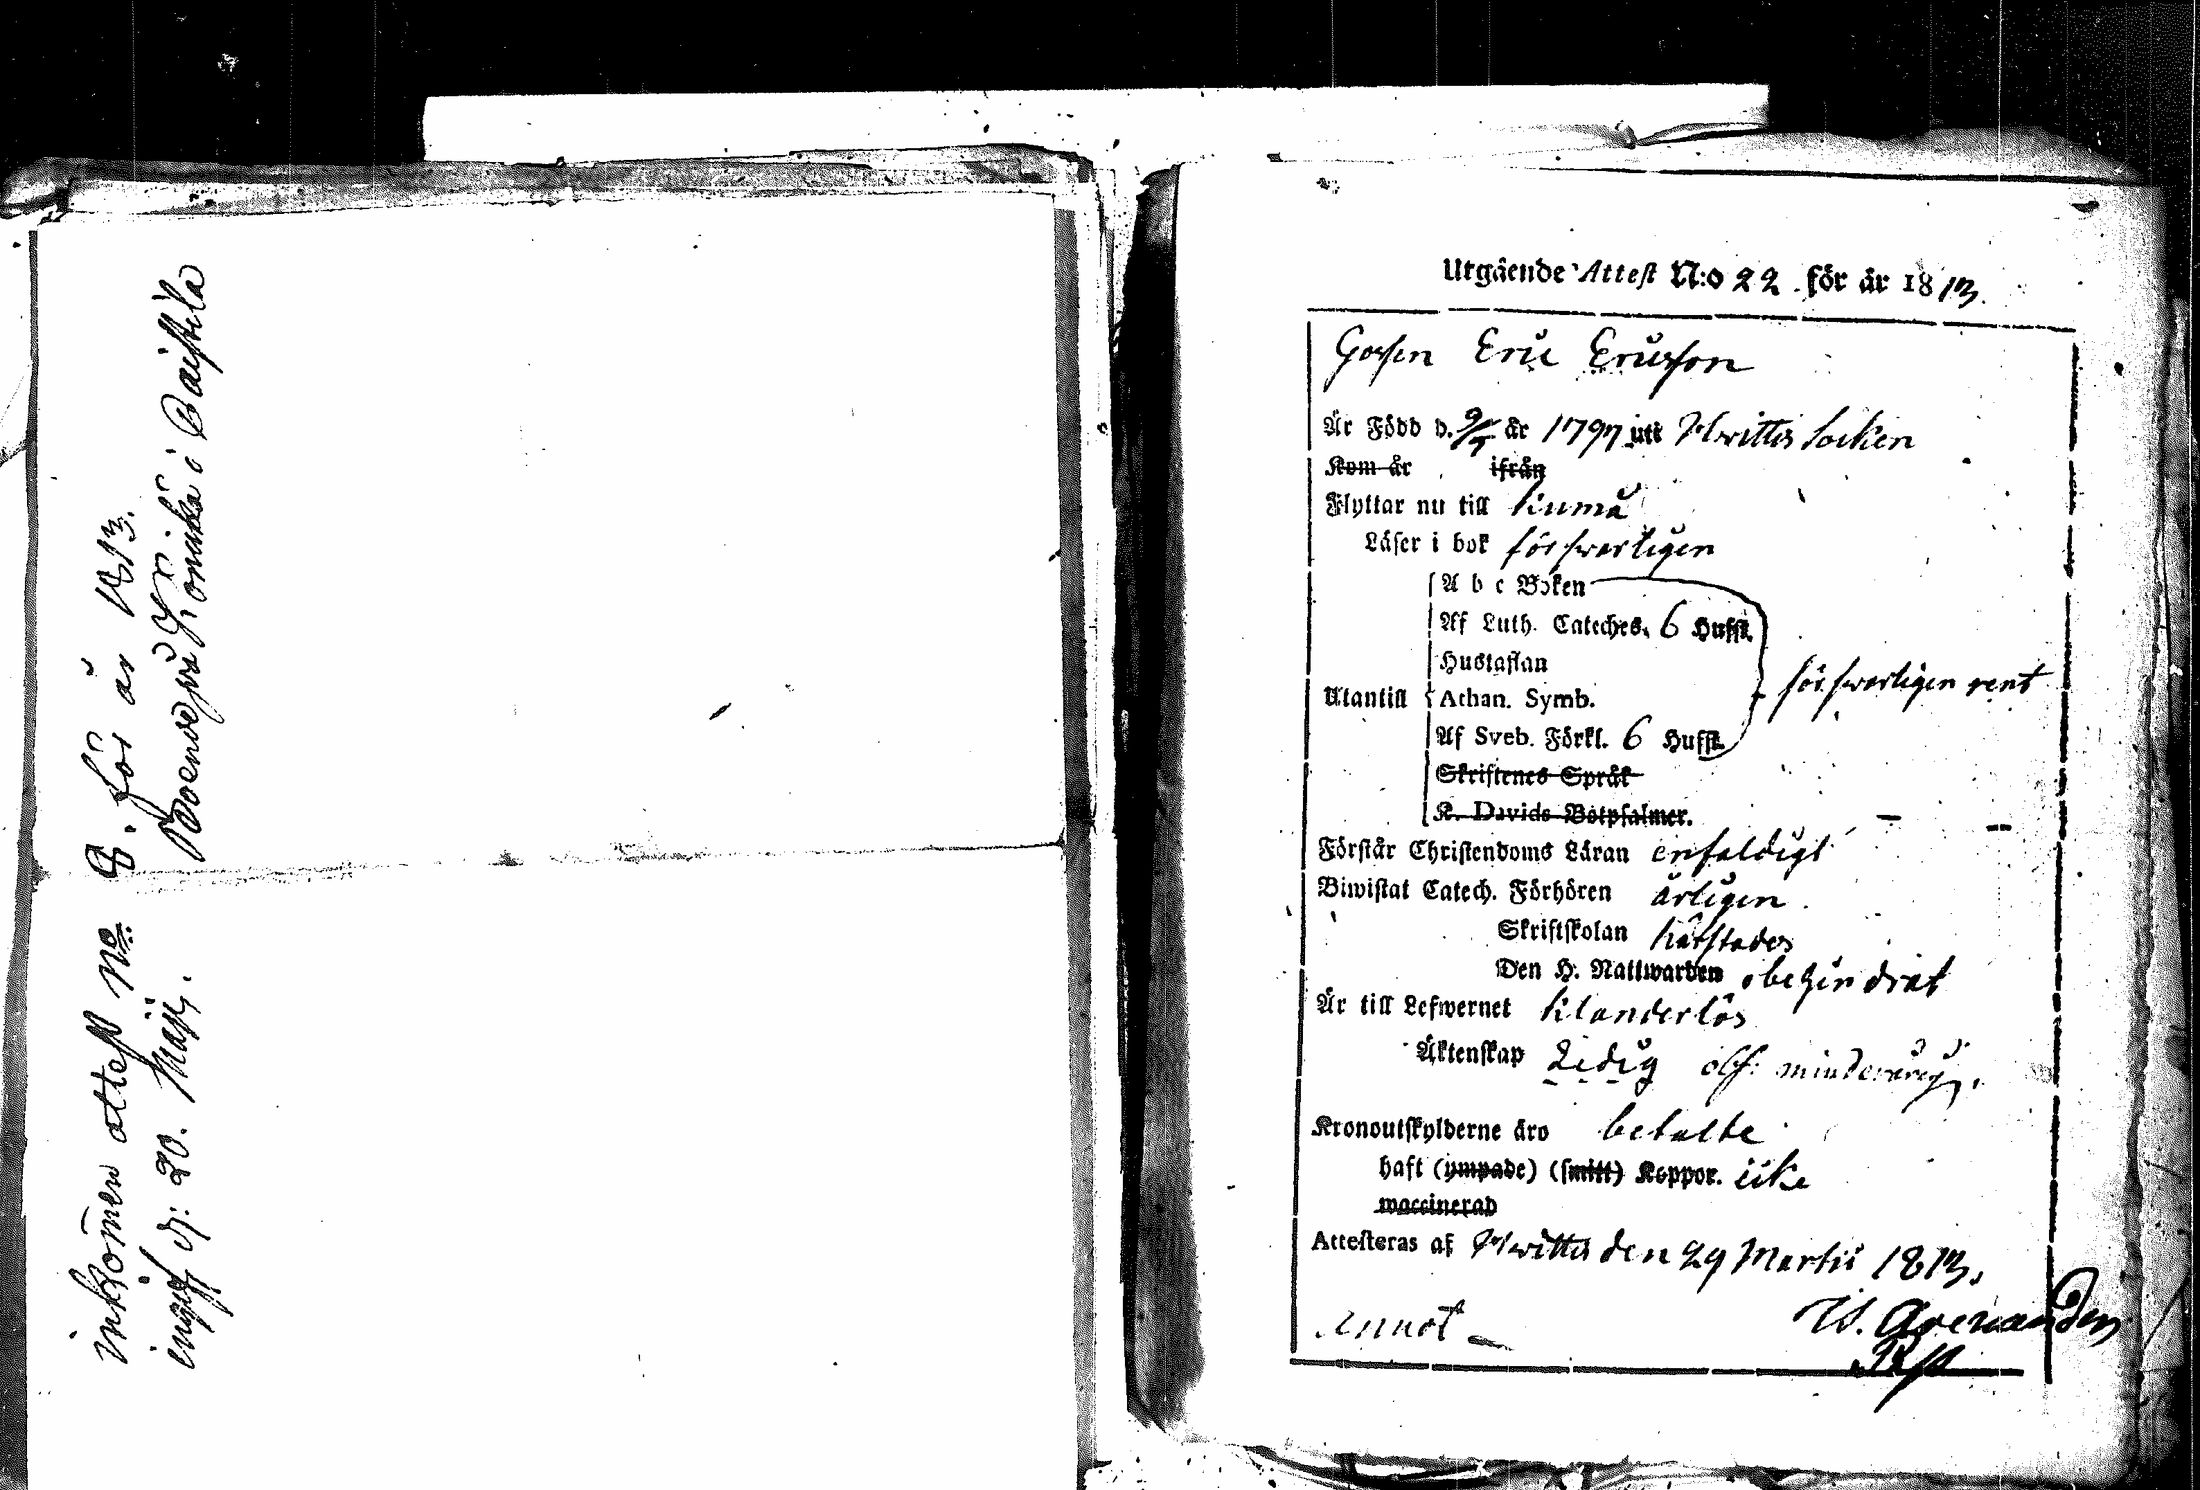 inkomen attest No 8. för år 1813.
ingif d: 20. Maji.
Boendes på Könikä i Raistila
Utgående Attest N:o 22. för år 1813.
Gossen Eric Ericsson
Är Född d. 9/7 år 1797 uti Hwittis Socken
Kom år ifrån
Flyttar nu till Kumå
Läser i bok förswarligen
A b c Boken
Af Luth. Cateches. 6 Hufst.
Hustaflan
Utantill Athan. Symb. förswarligen rent
Af Sveb. Förkl. 6 Hufst.
Skriftenes Språk
K. Davids Botpsalmer.
Förstår Christendoms Läran enfaldigt
Biwistat Catech. Förhören årligen
Skriftskolan härstädes
Den H. Nattwarden obehindrat
Är till Lefwernet klanderlös
Äktenskap Ledig
Kronoutskylderne äro betalte
haft (ympade) (smitt) Koppor. icke
waccinerad
Attesteras af Hwittis den 29 Martii 1813.
Annot